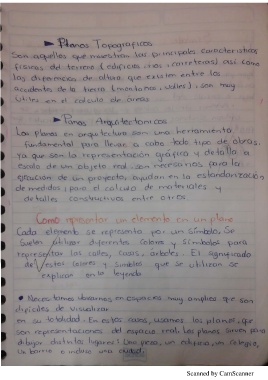 ► Planos Topograficos
Son aquellos que muestran las principales caracteristicas
fisicas del terreno (edificios, rios, carreteras), asi como
las diferencias de altura que existen entre los
accidentes de la tierra (montañas, valles), son muy
utiles en el calculo de areas
► Planos Arquitectonicos
Los planos en arquitectura son una herramienta
fundamental para llevar a cabo todo tipo de obras,
ya que son la representación grafica y detalla a
escala de un objeto real son necesarios para la
de un proyecto, ayudan en la estandarización
de medidas, para el calculo de materiales y
detalles constructivos entre otros
Como representar un elemento en un plano
Cada elemento se representa por un símbolo. Se
Suelen utilizar diferentes colores y símbolos para
representar las calles, casas, arboles. El significado
de estos colores y simbolos que se utilizan se
explican en la leyenda
• Necesitamos ubicarnos en espacios muy amplios que son
dificiles de visualizar
en su totalidad. En estos casos, usamos los planos, que
son representaciones del espacio real. Los planos sirven para
dibujar distintos lugares: Una pieza, un edificio, un colegio,
Un barrio o incluso una ciudad.
Scanned by CamScanner